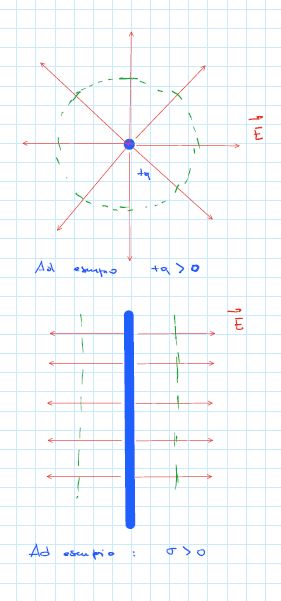 E
+q
Ad esempio +q > 0
E
Ad esempio : σ > 0